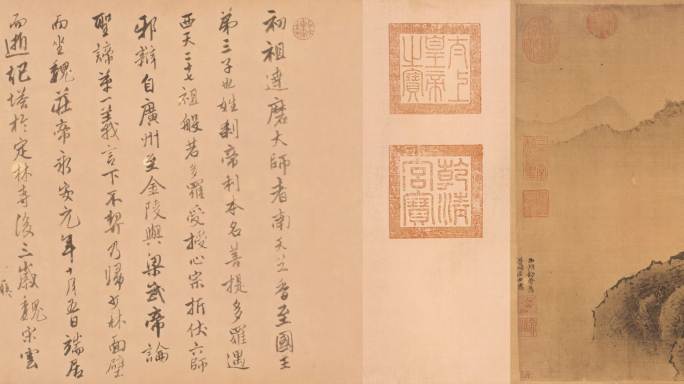 初祖達磨大師者南天竺香至國王
第三子也姓剎帝利本名菩提多羅遇
西天二十七祖般若多羅受授心宗折伏六師
邪辯自廣州至金陵與梁武帝論
聖諦第一義言下不契乃歸少林面壁
而坐魏莊帝永安元年十月五日端居
而逝起塔於定林寺後三歲魏宋雲
太上皇帝之寶
乾清宮寶